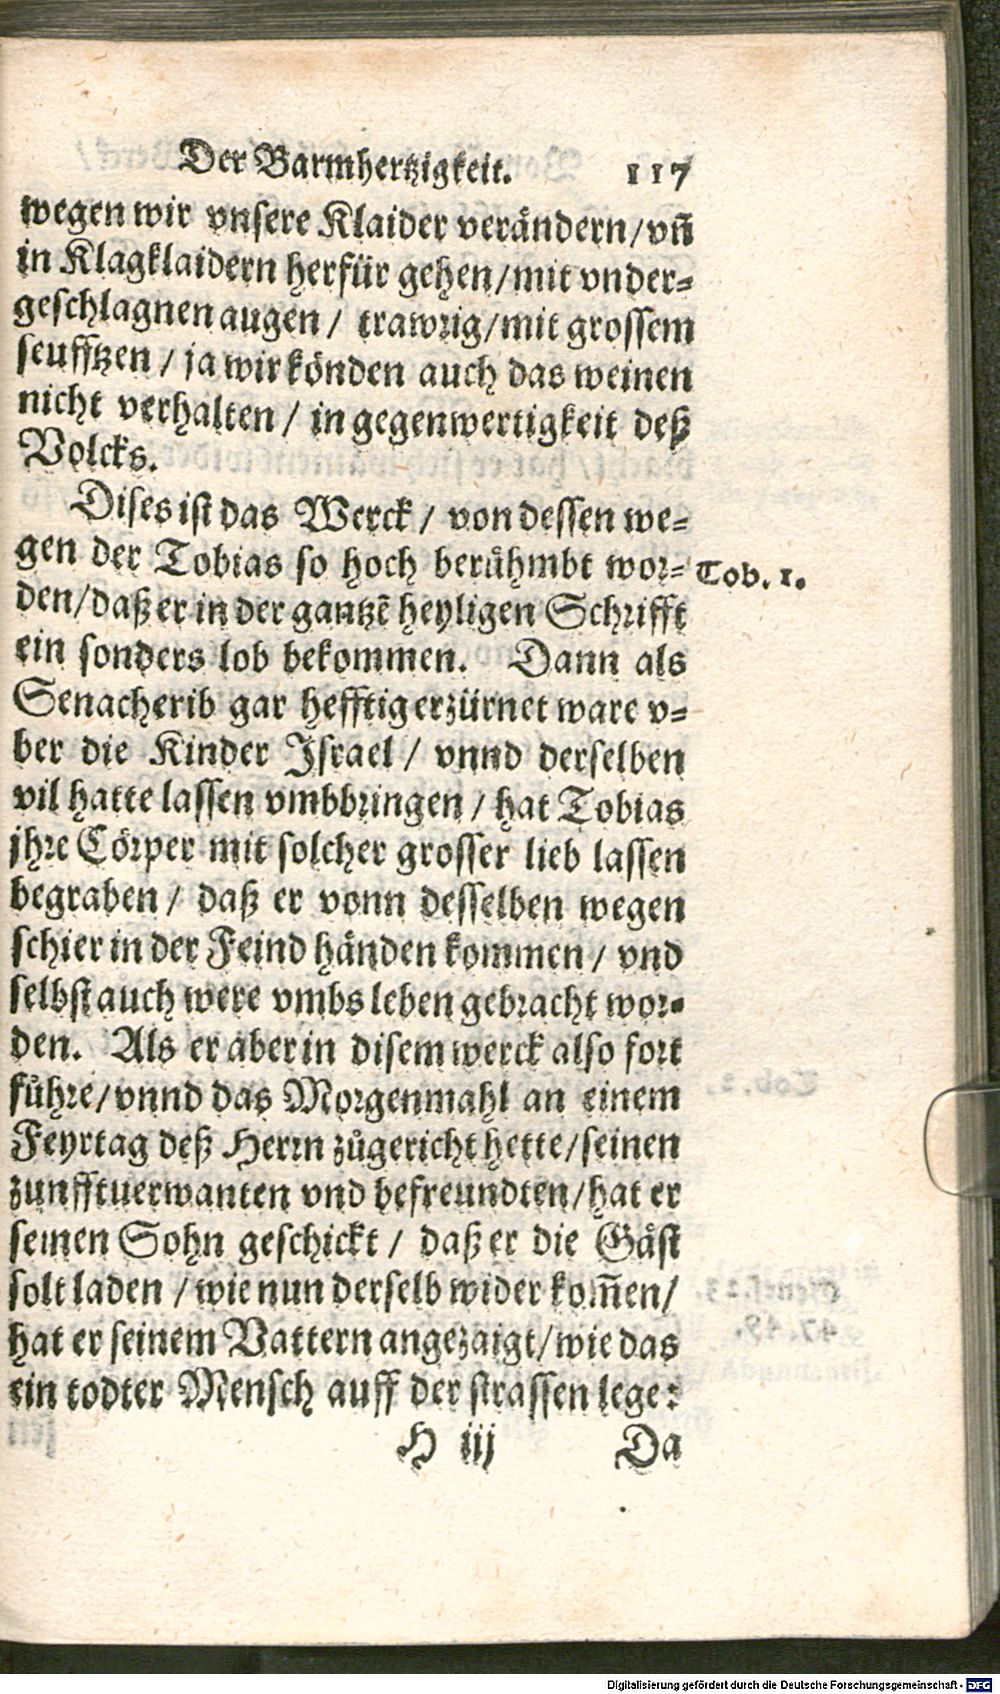 Der Barmhertzigkeit. 117
wegen wir vnsere Klaider verändern/vñ
in Klagklaidern herfür gehen/mit vnder-
geschlagnen augen/ trawrig/mit grossem
seufftzen/ ja wir könden auch das weinen
nicht verhalten/ in gegenwertigkeit deß
Volcks.
Dises ist das Werck/ von dessen we-
gen der Tobias so hoch berühmbt wor-
Tob. 1.
den/daß er in der gantzẽ heyligen Schrifft
ein sonders lob bekommen. Dann als
Senacherib gar hefftig erzürnet ware v-
ber die Kinder Israel/ vnnd derselben
vil hatte lassen vmbbringen/ hat Tobias
jhre Cörper mit solcher grosser lieb lassen
begraben/ daß er vonn desselben wegen
schier in der Feind händen kommen/ vnd
selbst auch were vmbs leben gebracht wor-
den. Als er aber in disem werck also fort
führe/vnnd das Morgenmahl an einem
Feyrtag deß Herrn zůgericht hette/seinen
zunfftuerwanten vnd befreundten/hat er
seinen Sohn geschickt/ daß er die Gäst
solt laden/ wie nun derselb wider kom̃en/
hat er seinem Vattern angezaigt/wie das
ein todter Mensch auff der strassen lege:
H iij Da
Digitalisierung gefördert durch die Deutsche Forschungsgemeinschaft - DFG